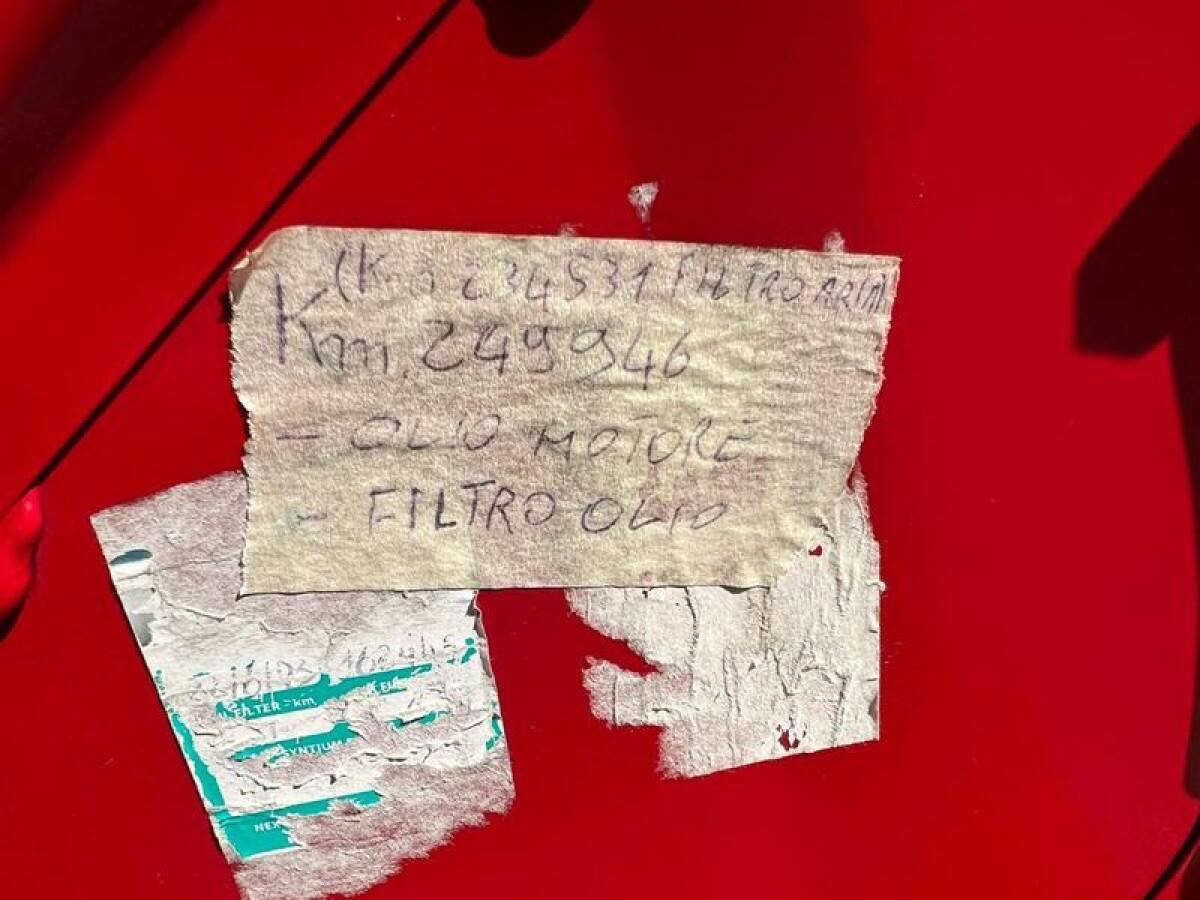 (Km 234531 FILTRO ARIA)
Km 249946
- OLIO MOTORE
- FILTRO OLIO
FILTER - km
SYNTIUM